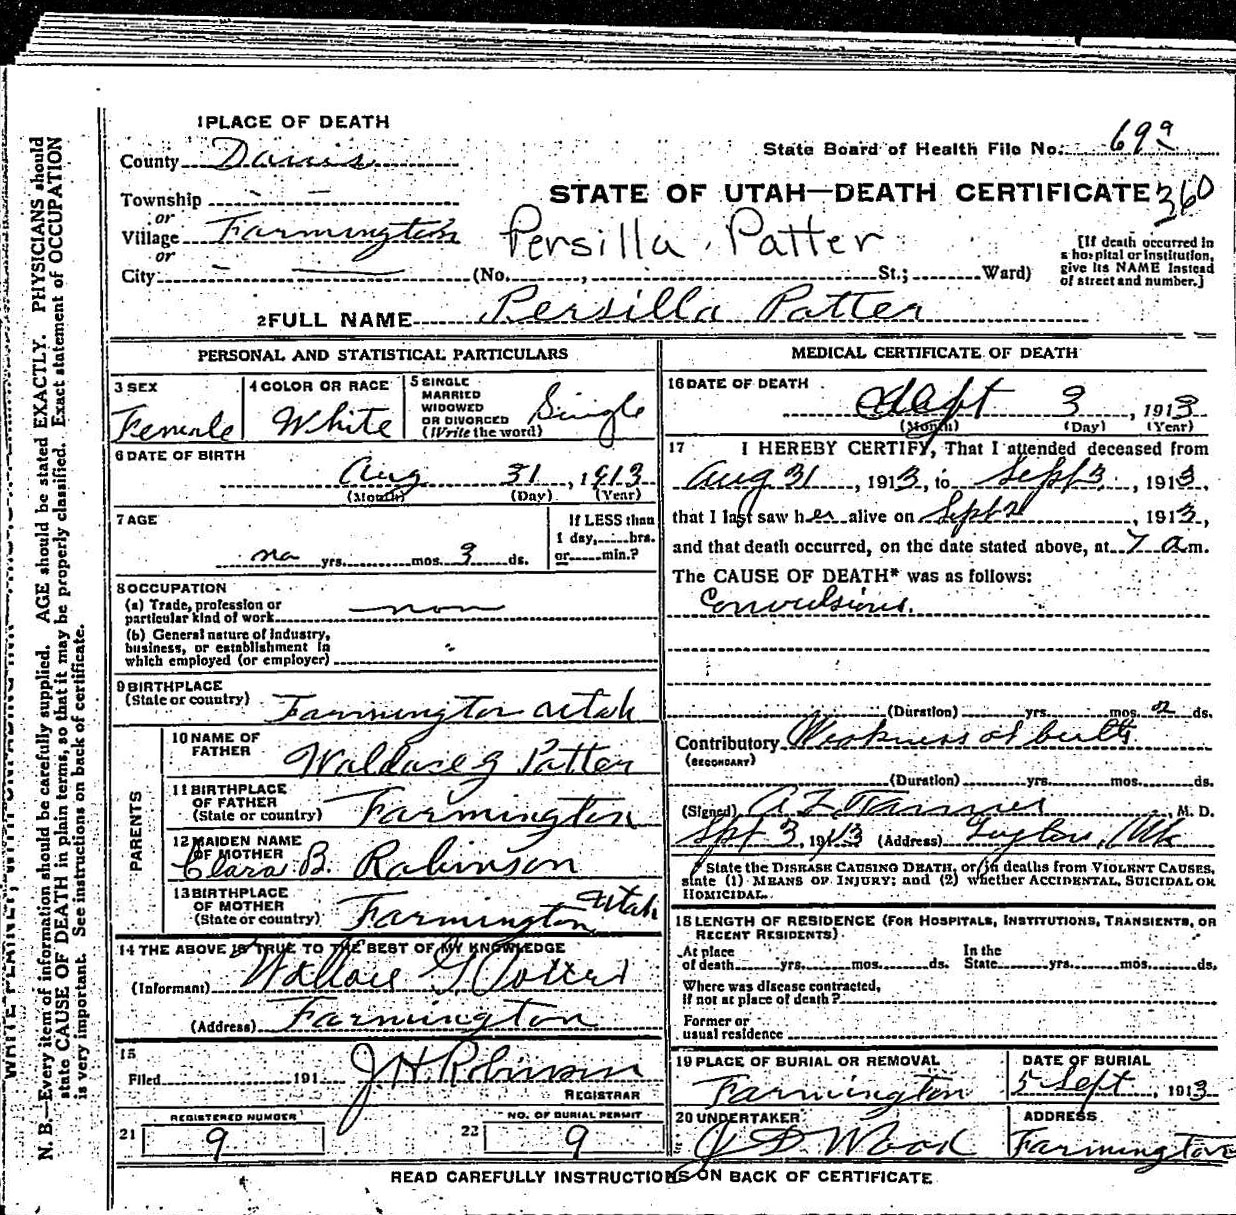 1 PLACE OF DEATH
County Davis
State Board of Health File No. 69a
Township
STATE OF UTAH—DEATH CERTIFICATE 360
or
Village Farmington
Persilla Patter
or
City (No. , St.; Ward)
[If death occurred in a hospital or institution, give its NAME instead of street and number.]
2 FULL NAME Persilla Patter
PERSONAL AND STATISTICAL PARTICULARS
3 SEX
Female
4 COLOR OR RACE
White
5 SINGLE
MARRIED
WIDOWED
OR DIVORCED
(Write the word)
Single
6 DATE OF BIRTH
Aug 31, 1913
(Month) (Day) (Year)
7 AGE
no yrs. mos. 3 ds.
If LESS than
1 day, hrs.
or min.?
8 OCCUPATION
(a) Trade, profession or
particular kind of work non
(b) General nature of Industry,
business, or establishment in
which employed (or employer)
9 BIRTHPLACE
(State or country) Farmington Utah
PARENTS
10 NAME OF
FATHER Waldace G Patter
11 BIRTHPLACE
OF FATHER
(State or country) Farmington
12 MAIDEN NAME
OF MOTHER
Clara B. Robinson
13 BIRTHPLACE
OF MOTHER
(State or country) Farmington Utah
14 THE ABOVE IS TRUE TO THE BEST OF MY KNOWLEDGE
(Informant) Wallace G Potter
(Address) Farmington
15
Filed 191 J H Robinson
REGISTRAR
REGISTERED NUMBER
21 9
NO. OF BURIAL PERMIT
22 9
MEDICAL CERTIFICATE OF DEATH
16 DATE OF DEATH
Sept 3, 1913
(Month) (Day) (Year)
17 I HEREBY CERTIFY, That I attended deceased from
Aug 31, 1913, to Sept 3, 1913,
that I last saw her alive on Sept 2, 1913,
and that death occurred, on the date stated above, at 7 a.m.
The CAUSE OF DEATH* was as follows:
Convulsions.
(Duration) yrs. mos. 2 ds.
Contributory Weakness at birth
(SECONDARY)
(Duration) yrs. mos. ds.
(Signed) A Z Tanner, M. D.
Sept 3, 1913 (Address) Layton, Utah
* State the DISEASE CAUSING DEATH, or, in deaths from VIOLENT CAUSES,
state (1) MEANS OF INJURY; and (2) whether ACCIDENTAL, SUICIDAL OR
HOMICIDAL.
18 LENGTH OF RESIDENCE (FOR HOSPITALS, INSTITUTIONS, TRANSIENTS, OR
RECENT RESIDENTS)
At place
of death yrs. mos. ds.
In the
State yrs. mos. ds.
Where was disease contracted,
if not at place of death?
Former or
usual residence
19 PLACE OF BURIAL OR REMOVAL
Farmington
DATE OF BURIAL
5 Sept, 1913
20 UNDERTAKER
J D Wood
ADDRESS
Farmington
READ CAREFULLY INSTRUCTIONS ON BACK OF CERTIFICATE
N. B.—Every item of information should be carefully supplied. AGE should be stated EXACTLY. PHYSICIANS should
state CAUSE OF DEATH in plain terms, so that it may be properly classified. Exact statement of OCCUPATION
is very important. See instructions on back of certificate.